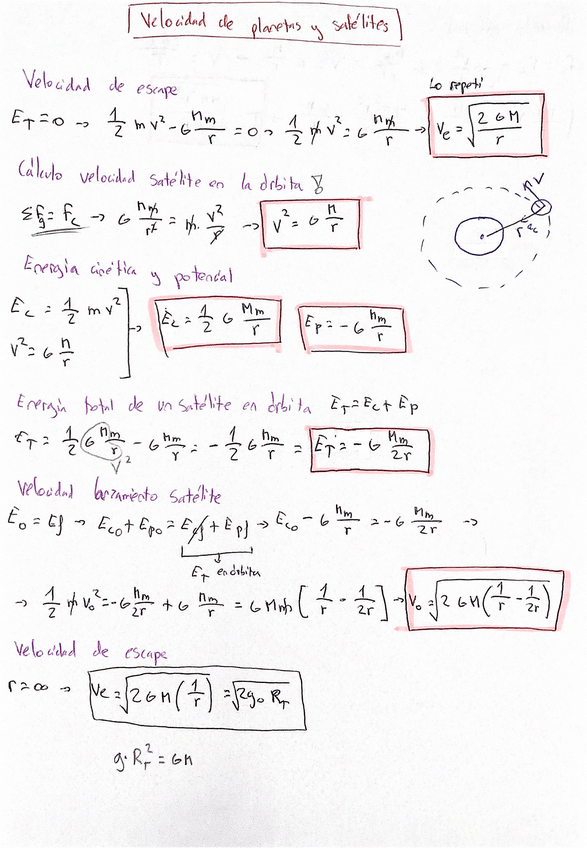 Velocidad de planetas y satélites
Velocidad de escape
Lo repetí
E_T = 0 → 1/2 m v² - G Mm/r = 0 → 1/2 m v² = G Mm/r → V_e = √(2GM/r)
Cálculo velocidad satélite en la órbita
ΣF_g = F_c → G Mm/r² = m · v²/r → v² = G M/r
v
a_c
r
Energía cinética y potencial
E_c = 1/2 m v²
V² = G M/r
→ E_c = 1/2 G Mm/r
E_p = -G Mm/r
Energía total de un satélite en órbita E_T = E_c + E_p
E_T = 1/2 G Mm/r - G Mm/r = -1/2 G Mm/r = E_T = -G Mm/2r
V²
Velocidad lanzamiento satélite
E_o = E_f → E_co + E_po = E_cf + E_pf → E_co - G Mm/r = -G Mm/2r →
E_T en órbita
→ 1/2 m v_o² = -G Mm/2r + G Mm/r = G Mm [1/r - 1/2r] → V_o = √(2GM(1/r - 1/2r))
Velocidad de escape
r = ∞ → V_e = √(2GM(1/r)) = √(2g_o R_T)
g · R_T² = GM